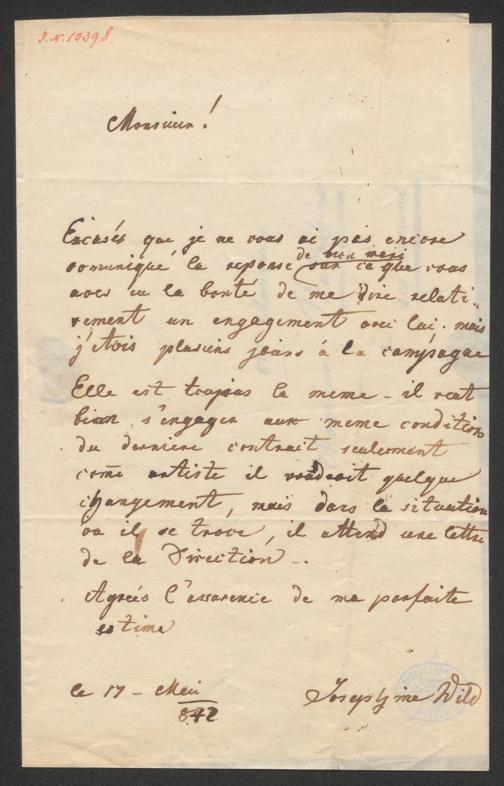 I. N. 10398
Monsieur!
Excusés que je ne vous ai pas encore
de mon mari
comuniqué la reponse sur ce que vous
aves eu la bonté de me dire relati-
vement un engagement avec lui. mais
j'étois plusieurs jours à la campagne
Elle est toujous la meme - il veut
bien s'engager aux meme condition
du derniere contrait seulement
come artiste il voudroit quelque
changement, mais dans la situation
ou il se trove, il attend une lettre
de la Direction -.
Agreés l'assurence de ma parfaite
estime
le 17 - Mai
842
Josephine Wild